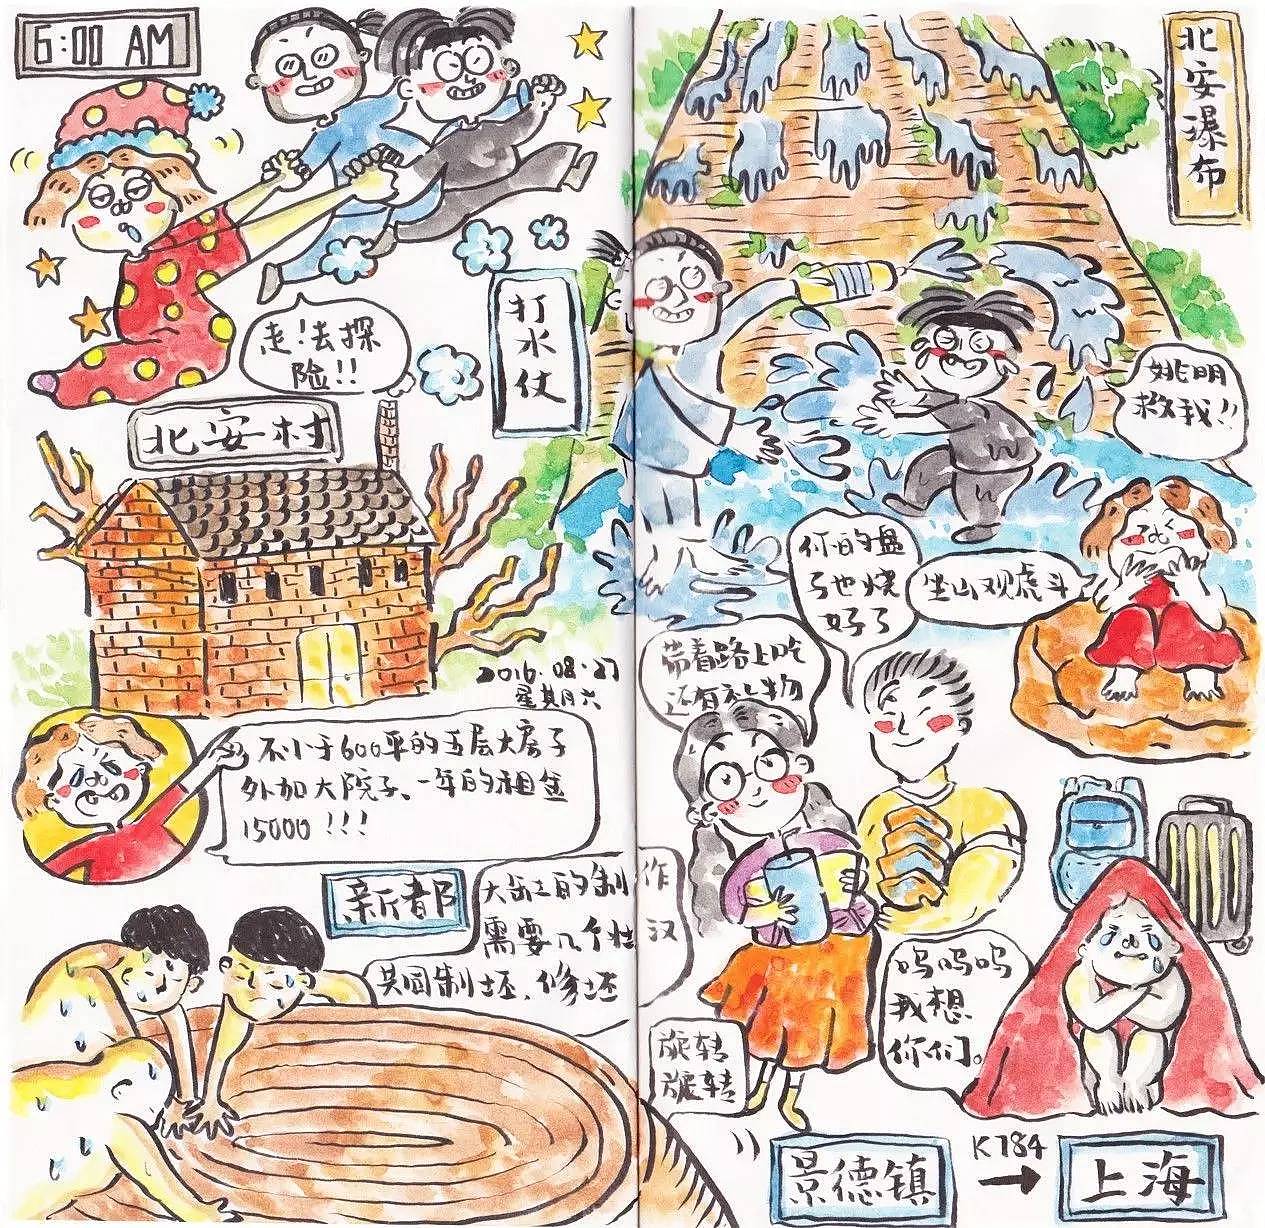 6:00 AM
走!去探
险!!
北安村
打水仗
2016.08.27
星期六
不小于600平的五层大房子
外加大院子、一年的租金
15000!!!
新都
大缸的制作
需要几个壮汉
共同制坯、修坯
北安瀑布
姚明
救我!!
坐山观虎斗
你的盘
子也烧
好了
带着路上吃
还有礼物
呜呜呜
我想
你们。
旋转
旋转
景德镇
K784
上海